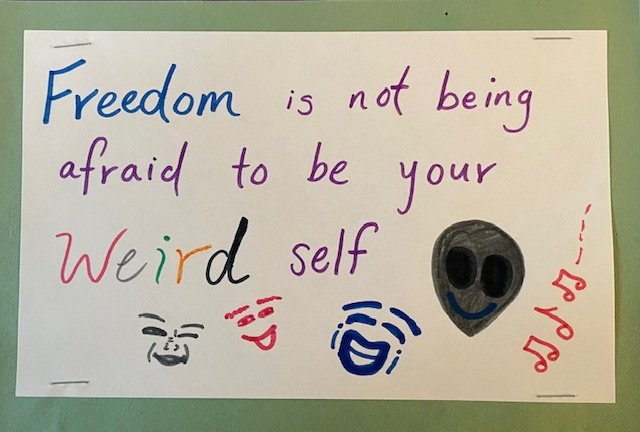 Freedom is not being
afraid to be your
Weird self